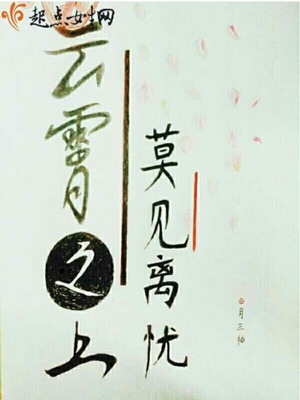 起点女生网
云霄之上
莫见离忧
月三